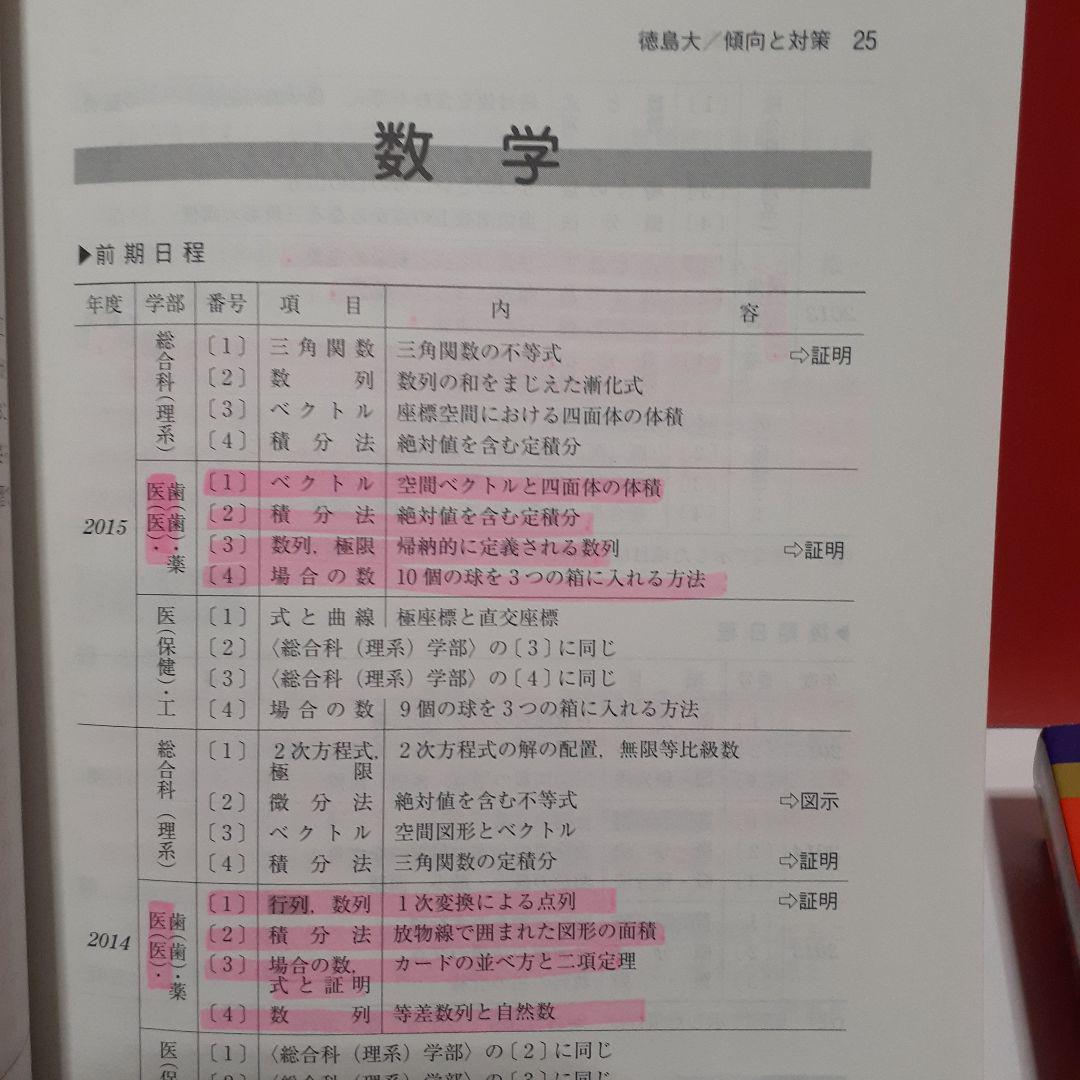 徳島大／傾向と対策 25
数学
▶前期日程
年度 学部 番号 項目 内容
2015
総合科（理系）
〔1〕 三角関数 三角関数の不等式 ⇨証明
〔2〕 数列 数列の和をまじえた漸化式
〔3〕 ベクトル 座標空間における四面体の体積
〔4〕 積分法 絶対値を含む定積分
医（医）・歯（歯）・薬
〔1〕 ベクトル 空間ベクトルと四面体の体積
〔2〕 積分法 絶対値を含む定積分
〔3〕 数列，極限 帰納的に定義される数列 ⇨証明
〔4〕 場合の数 10個の球を3つの箱に入れる方法
医（保健）・工
〔1〕 式と曲線 極座標と直交座標
〔2〕 〈総合科（理系）学部〉の〔3〕に同じ
〔3〕 〈総合科（理系）学部〉の〔4〕に同じ
〔4〕 場合の数 9個の球を3つの箱に入れる方法
2014
総合科（理系）
〔1〕 2次方程式， 2次方程式の解の配置，無限等比級数
極限
〔2〕 微分法 絶対値を含む不等式 ⇨図示
〔3〕 ベクトル 空間図形とベクトル
〔4〕 積分法 三角関数の定積分 ⇨証明
医（医）・歯（歯）・薬
〔1〕 行列，数列 1次変換による点列 ⇨証明
〔2〕 積分法 放物線で囲まれた図形の面積
〔3〕 場合の数， カードの並べ方と二項定理
式と証明
〔4〕 数列 等差数列と自然数
医（保
〔1〕 〈総合科（理系）学部〉の〔2〕に同じ